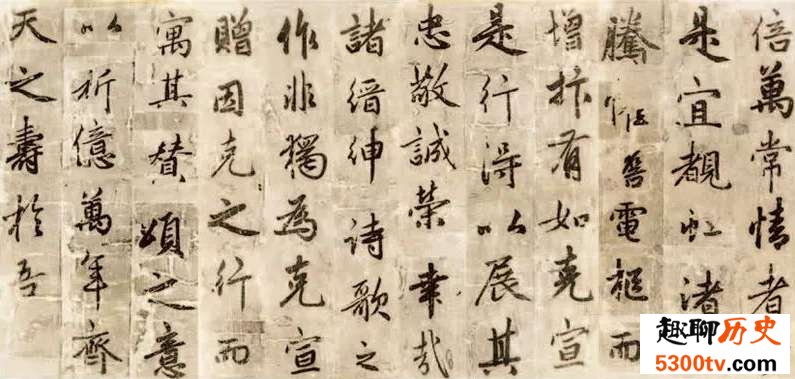 倍萬常情者
是宜覩虹渚
騰電樞而
增抃有如克宣
是行得以展其
忠敬誠榮幸哉
諸縉紳詩歌之
作非獨為克宣
贈因克之行而
寓其賛頌之意
以祈億萬年齊
天之壽於吾
趣聊历史
5300tv.com